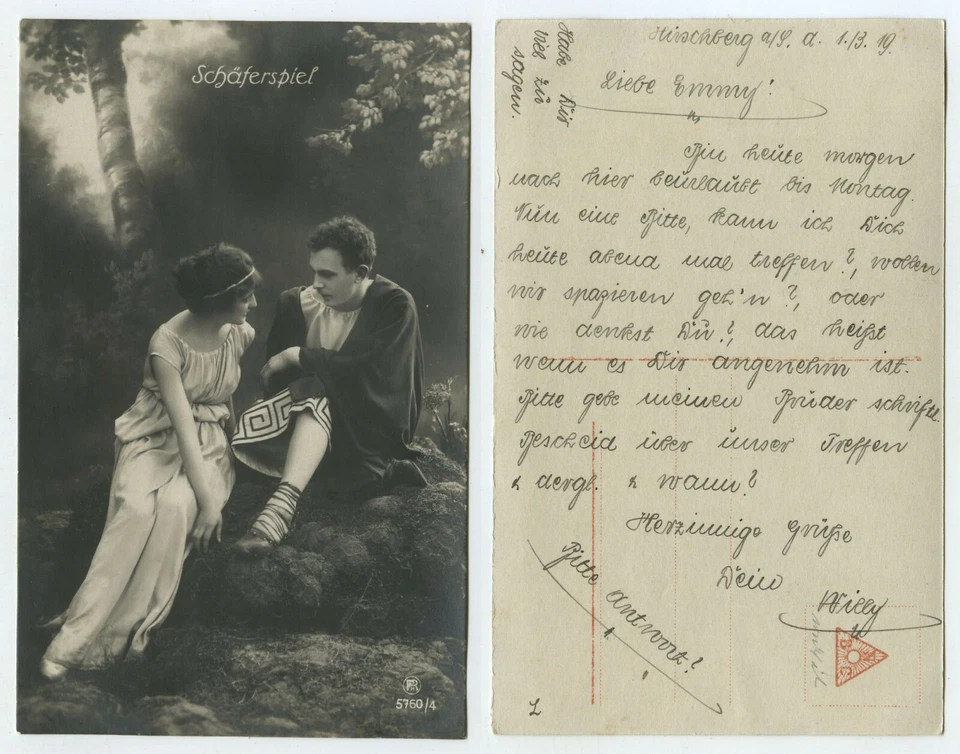 Schäferspiel
5760/4
Habe Dir
viel zu
sagen.
Hirschberg a/S. d. 1./3. 19.
Liebe Emmy!
Bin heute morgen
nach hier beurlaubt bis Montag.
Nun eine Bitte, kann ich Dich
heute abend mal treffen?, wollen
wir spazieren geh'n?, oder
wie denkst Du?, das heißt
wenn es Dir angenehm ist.
Bitte gebe meinen Bruder schriftl.
Bescheid über unser Treffen
& dergl. & wann?
Herzinnige Grüße
Dein
Willy
Bitte Antwort?